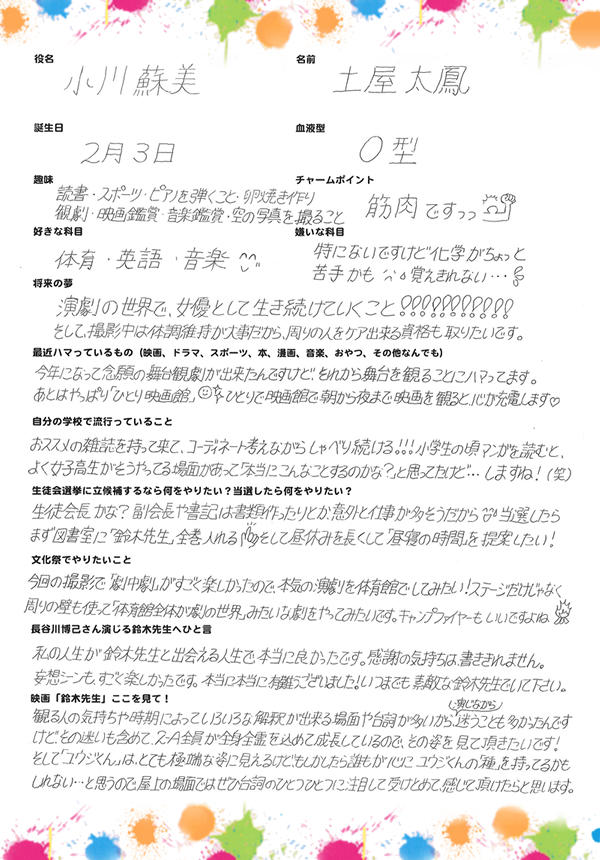 役名
小川 蘇美
名前
土屋 太鳳
誕生日
2月3日
血液型
O型
趣味
読書・スポーツ・ピアノを弾くこと・卵焼き作り
観劇・映画鑑賞・音楽鑑賞・空の写真を撮ること
チャームポイント
筋肉ですっっ
好きな科目
体育・英語・音楽
嫌いな科目
特にないですけど化学がちょっと
苦手かも 覚えきれない…
将来の夢
演劇の世界で、女優として生き続けていくこと!!!!!!!!!!!
そして、撮影中は体調維持が大事だから、周りの人をケア出来る資格も取りたいです。
最近ハマっているもの（映画、ドラマ、スポーツ、本、漫画、音楽、おやつ、その他なんでも）
今年になって念願の舞台観劇が出来たんですけど、それから舞台を観ることにハマってます。
あとはやっぱり「ひとり映画館」 ひとりで映画館で朝から夜まで映画を観ると、心が充電します♡
自分の学校で流行っていること
おススメの雑誌を持って来て、コーディネート考えながらしゃべり続ける!!! 小学生の頃マンガを読むと、
よく女子高生がそうやってる場面があって「本当にこんなことするのかな?」と思ってたけど…しますね!(笑)
生徒会選挙に立候補するなら何をやりたい？当選したら何をやりたい？
生徒会長かな? 副会長や書記は書類作ったりとか意外と仕事が多そうだから 当選したら
まず図書室に「鈴木先生」全巻入れる そして昼休みを長くして「昼寝の時間」を提案したい!
文化祭でやりたいこと
今回の撮影で「劇中劇」がすごく楽しかったので、本気の演劇を体育館でしてみたい!ステージだけじゃなく
周りの壁も使って「体育館全体が劇の世界」みたいな劇をやってみたいです。キャンプファイヤーもいいですよね
長谷川博己さん演じる鈴木先生へひと言
私の人生が鈴木先生と出会える人生で、本当に良かったです。感謝の気持ちは、書ききれません。
妄想シーンも、すごく楽しかったです。本当に本当に有難うございました!いつまでも素敵な鈴木先生でいて下さい。
映画「鈴木先生」ここを見て！
観る人の気持ちや時期によっていろいろな解釈が出来る場面や台詞が多いから、演じながら迷うことも多かったんです
けど、その迷いも含めて、2-A全員が全身全霊を込めて成長しているので、その姿を見て頂きたいです!
そして「ユウジくん」は、とても極端な姿に見えるけど、もしかしたら誰もが心にユウジくんの「種」を持ってるかも
しれない…と思うので、屋上の場面ではぜひ台詞のひとつひとつに注目して受けとめて、感じて頂けたらと思います。